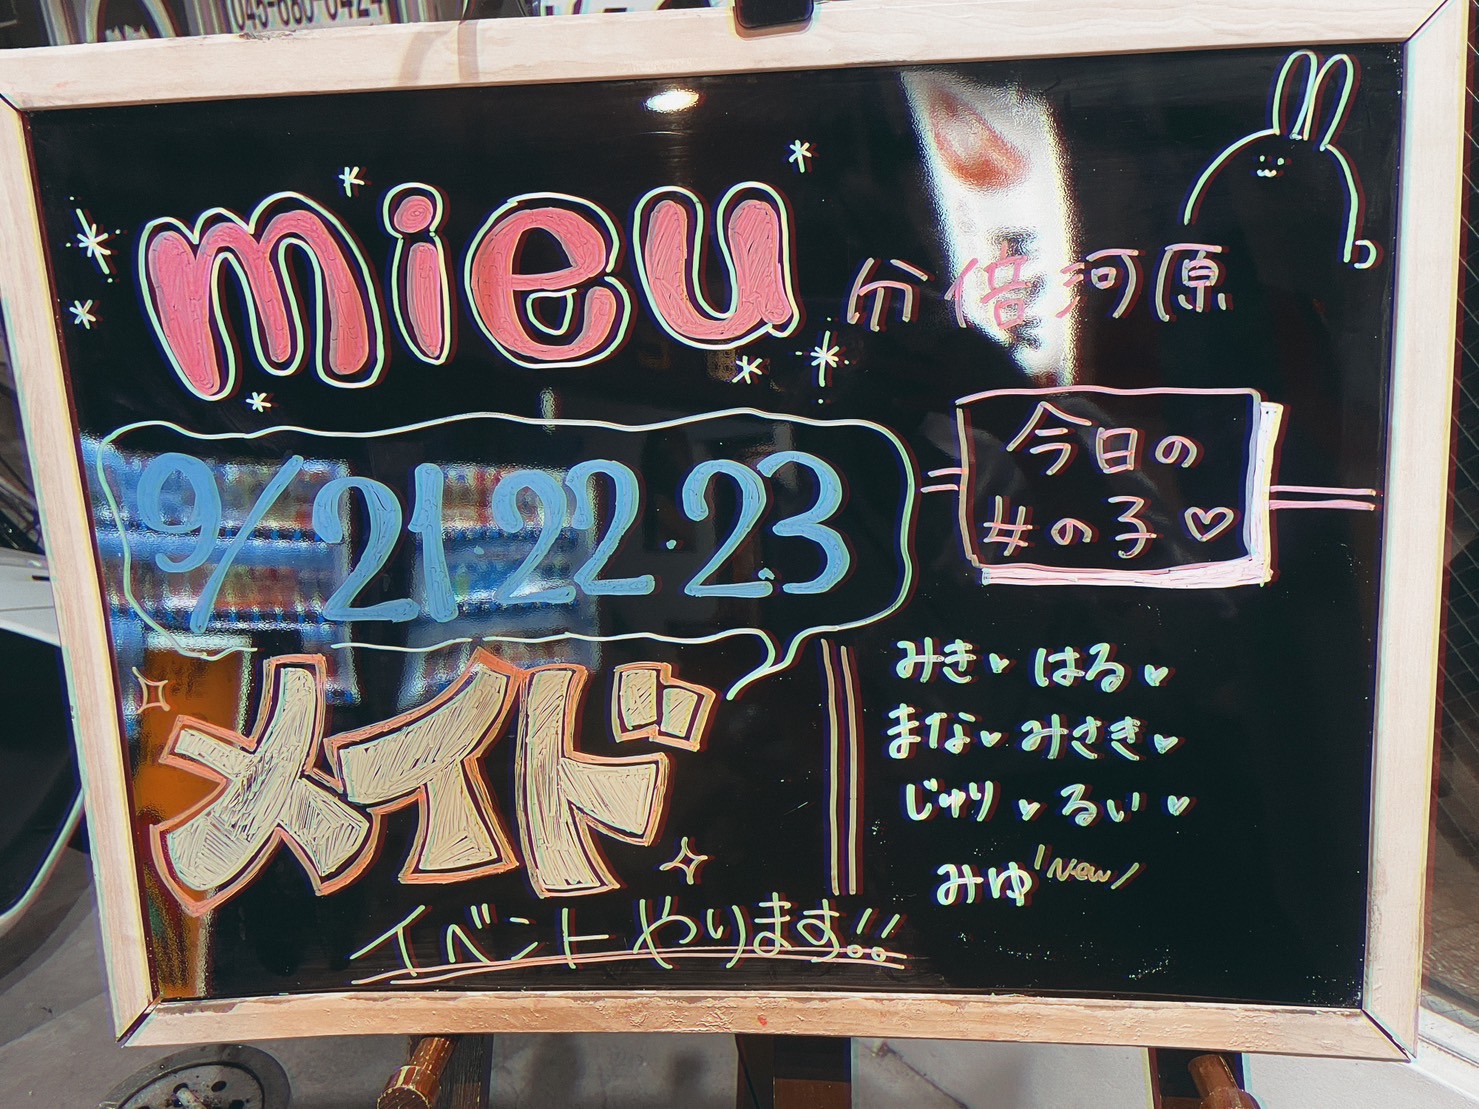 045-680-0424
mieu 分倍河原
9/21.22.23
メイド
イベントやります!!
今日の
女の子♡
みき♥ はる♥
まな♥ みさき♥
じゅり♥ るい♥
みゆ New